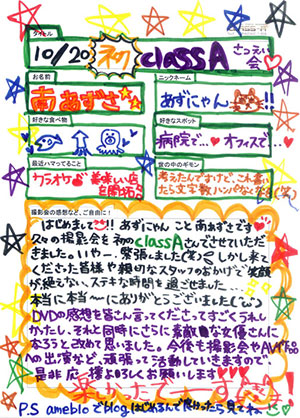 タイトル
10/20 初 classA さつえい会
お名前
南 あずさ
ニックネーム
あずにゃん !!
好きな食べ物
好きなスポット
病院で… オフィスで…
最近ハマってること
カラオケ♪ 美味しい店を開拓♪
世の中のギモン
考えたんですけど、これ書いたら文字数ハンパなくなる(笑)
撮影会の感想など、ご自由に!
はじめまして!! あずにゃん こと 南あずさです
久々の撮影会を初のclassAさんでさせていただ
きました。いやー、緊張しました(笑) しかし来て
くださった皆様や親切なスタッフのおかげで笑顔
が絶えない、ステキな時間を過ごせました…
本当に本当〜にありがとうございました(^ω^)
DVDの感想を皆さん言ってくださってすごくうれし
かったし、それと同時にさらに素敵な女優さんに
なろうと改めて思いました。今後も撮影会やAV作品
への出演など、頑張って活動していきますので、
是非応援よろしくお願いします
楽しかったでーす
P.S amebloでblogはじめるんで良かったら見てね